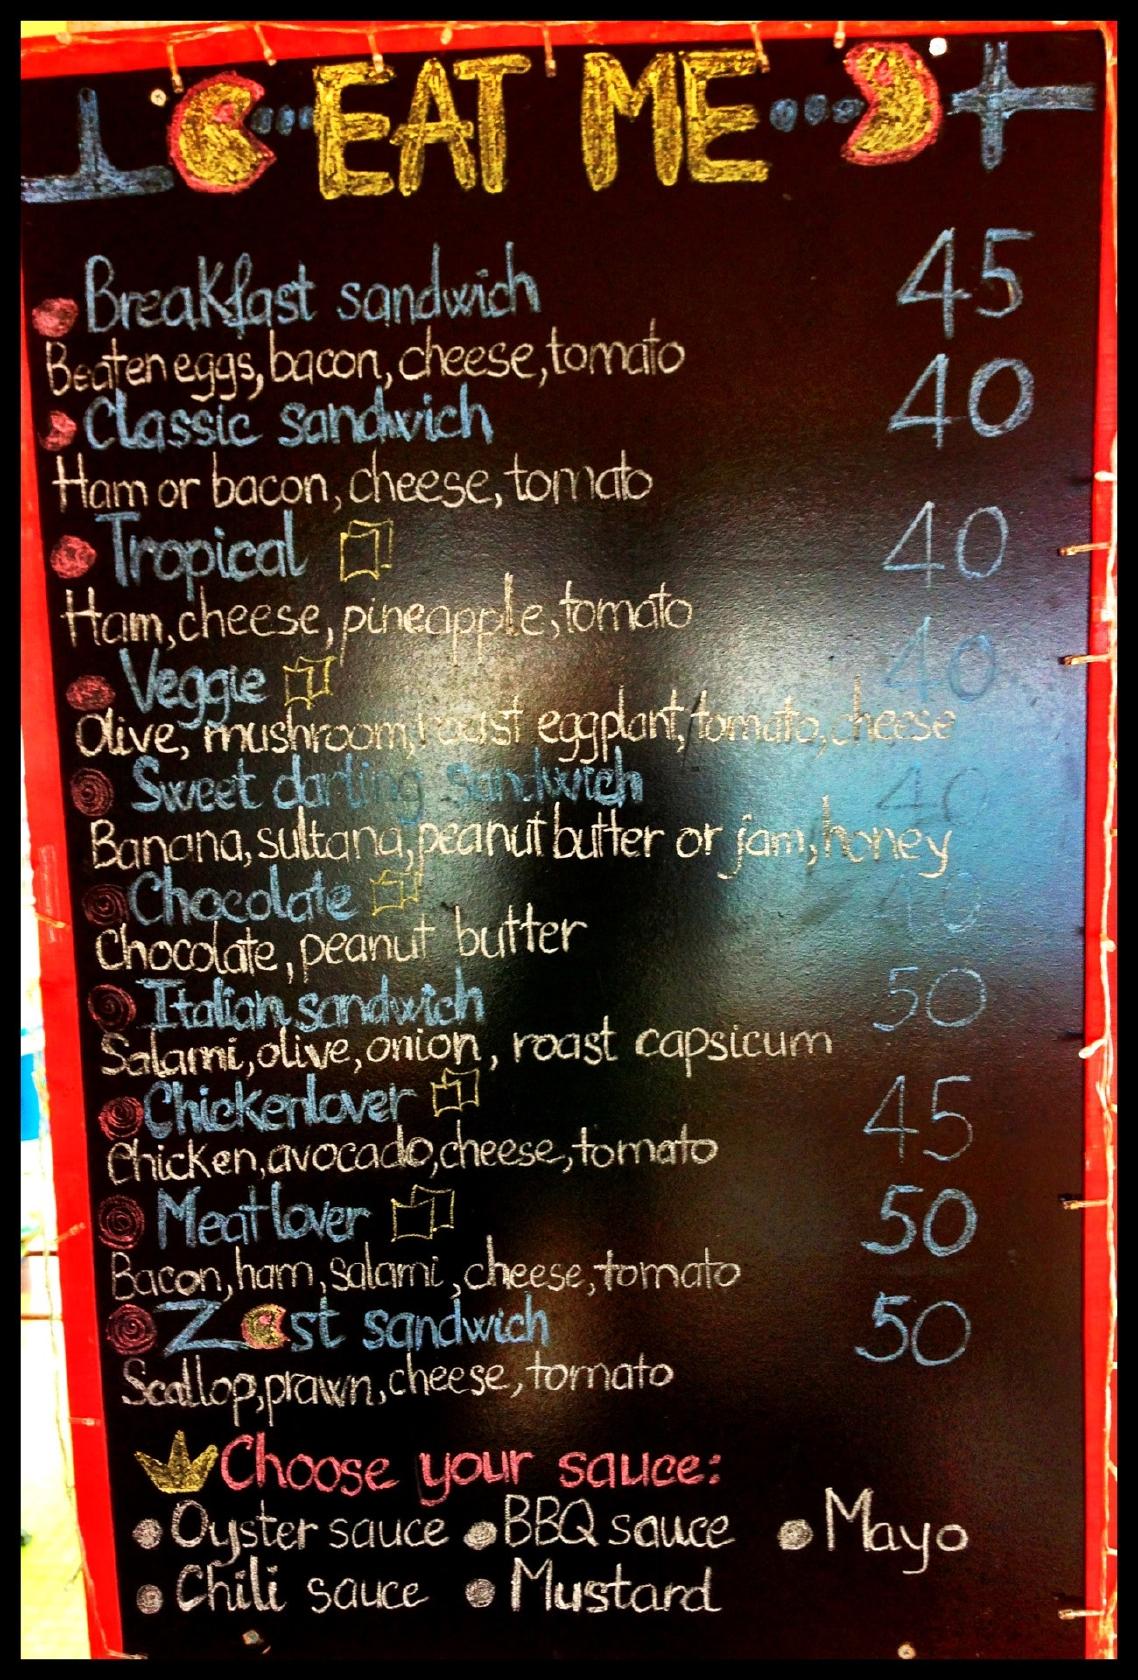 EAT ME
Breakfast sandwich 45
Beaten eggs, bacon, cheese, tomato
Classic sandwich 40
Ham or bacon, cheese, tomato
Tropical 40
Ham, cheese, pineapple, tomato
Veggie 40
Olive, mushroom, roast eggplant, tomato, cheese
Sweet darling sandwich 40
Banana, sultana, peanut butter or jam, honey
Chocolate 40
Chocolate, peanut butter
Italian sandwich 50
Salami, olive, onion, roast capsicum
Chickenlover 45
Chicken, avocado, cheese, tomato
Meatlover 50
Bacon, ham, salami, cheese, tomato
sandwich 50
Scallop, prawn, cheese, tomato
Choose your sauce:
Oyster sauce BBQ sauce Mayo
Chili sauce Mustard